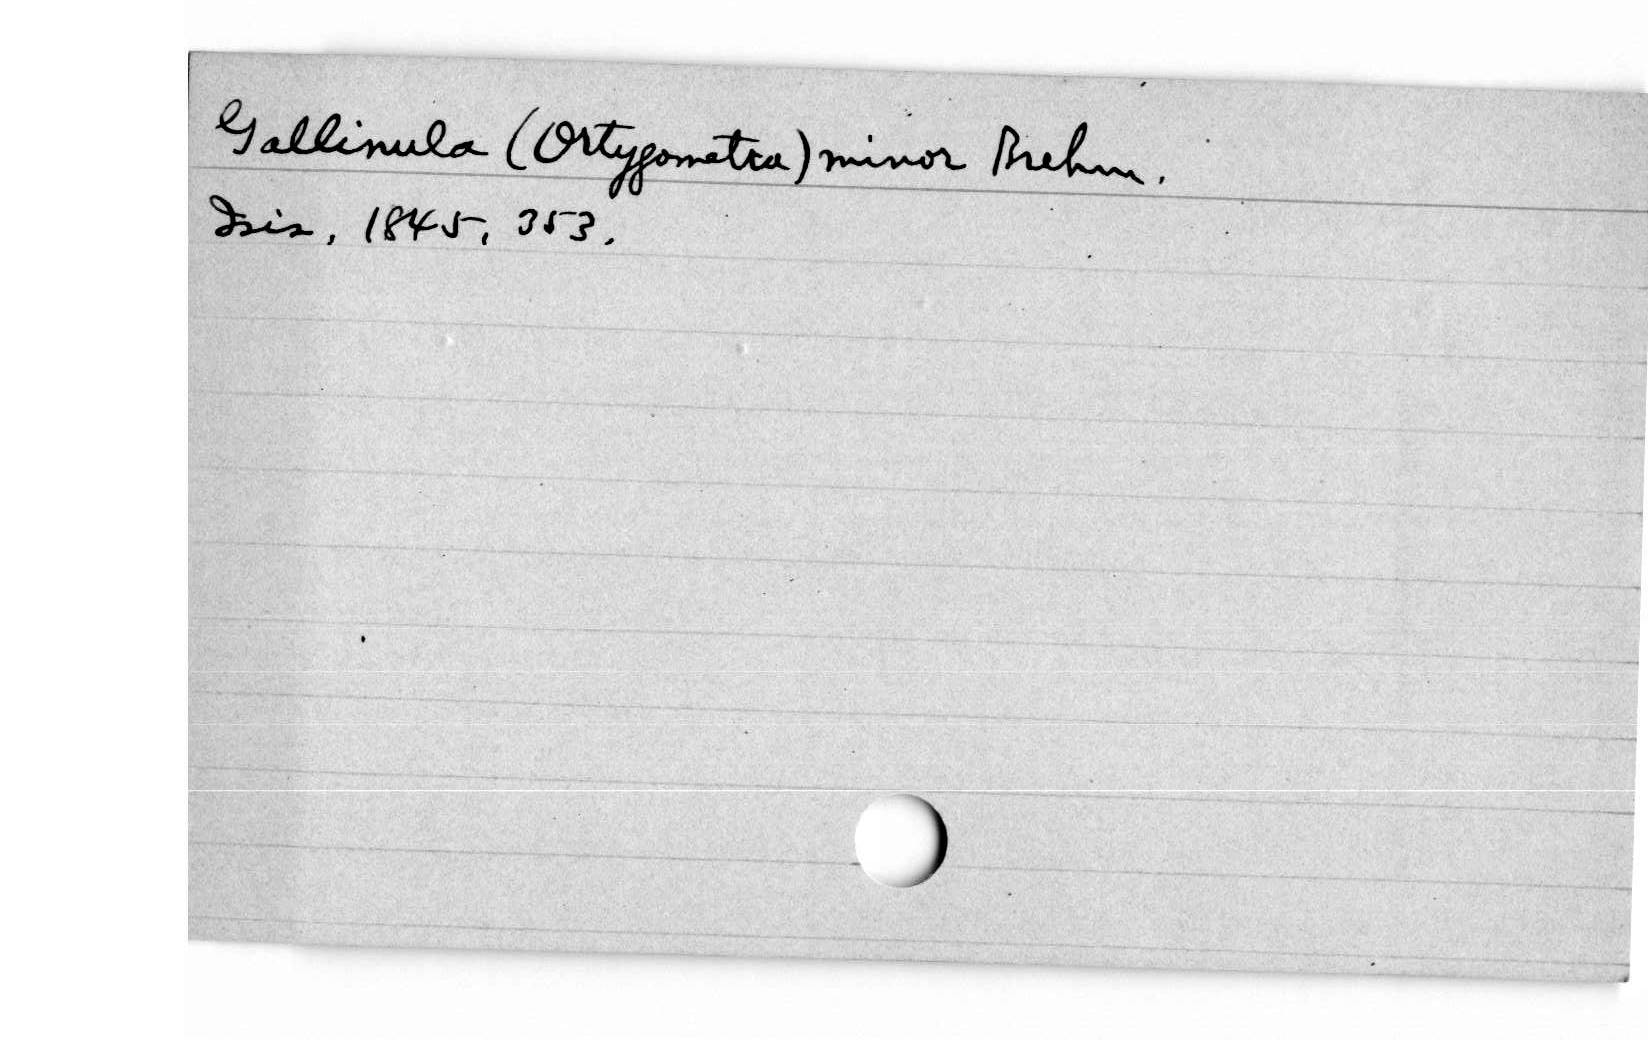 Gallinula (Ortygometra) minor Brehm.
Isis, 1845, 353.